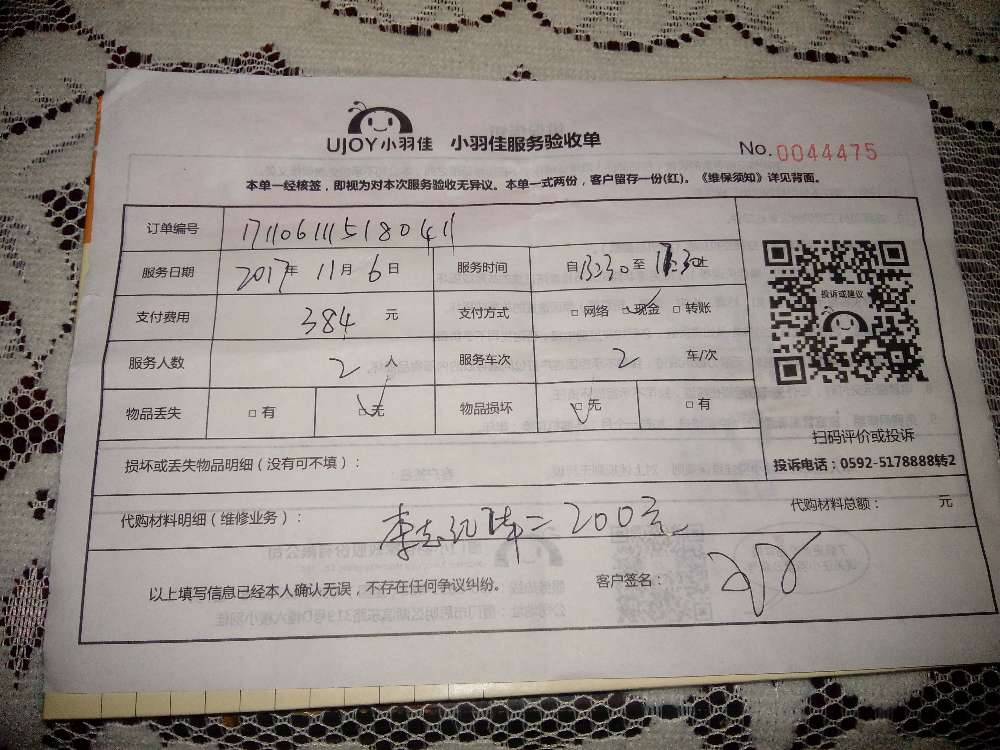 UJOY小羽佳 小羽佳服务验收单
No.0044475
本单一经核签，即视为对本次服务验收无异议。本单一式两份，客户留存一份(红)。《维保须知》详见背面。
订单编号 17110611151804 11
服务日期 2017年 11月 6日 服务时间 自 至
支付费用 384 元 支付方式 □ 网络 □ 现金 □ 转账
投诉或建议
服务人数 2 人 服务车次 2 车/次
物品丢失 □ 有 □ 无 物品损坏 □ 无 □ 有
扫码评价或投诉
损坏或丢失物品明细（没有可不填）：
投诉电话：0592-5178888转2
代购材料明细（维修业务）： 200元
代购材料总额： 元
以上填写信息已经本人确认无误，不存在任何争议纠纷。 客户签名：